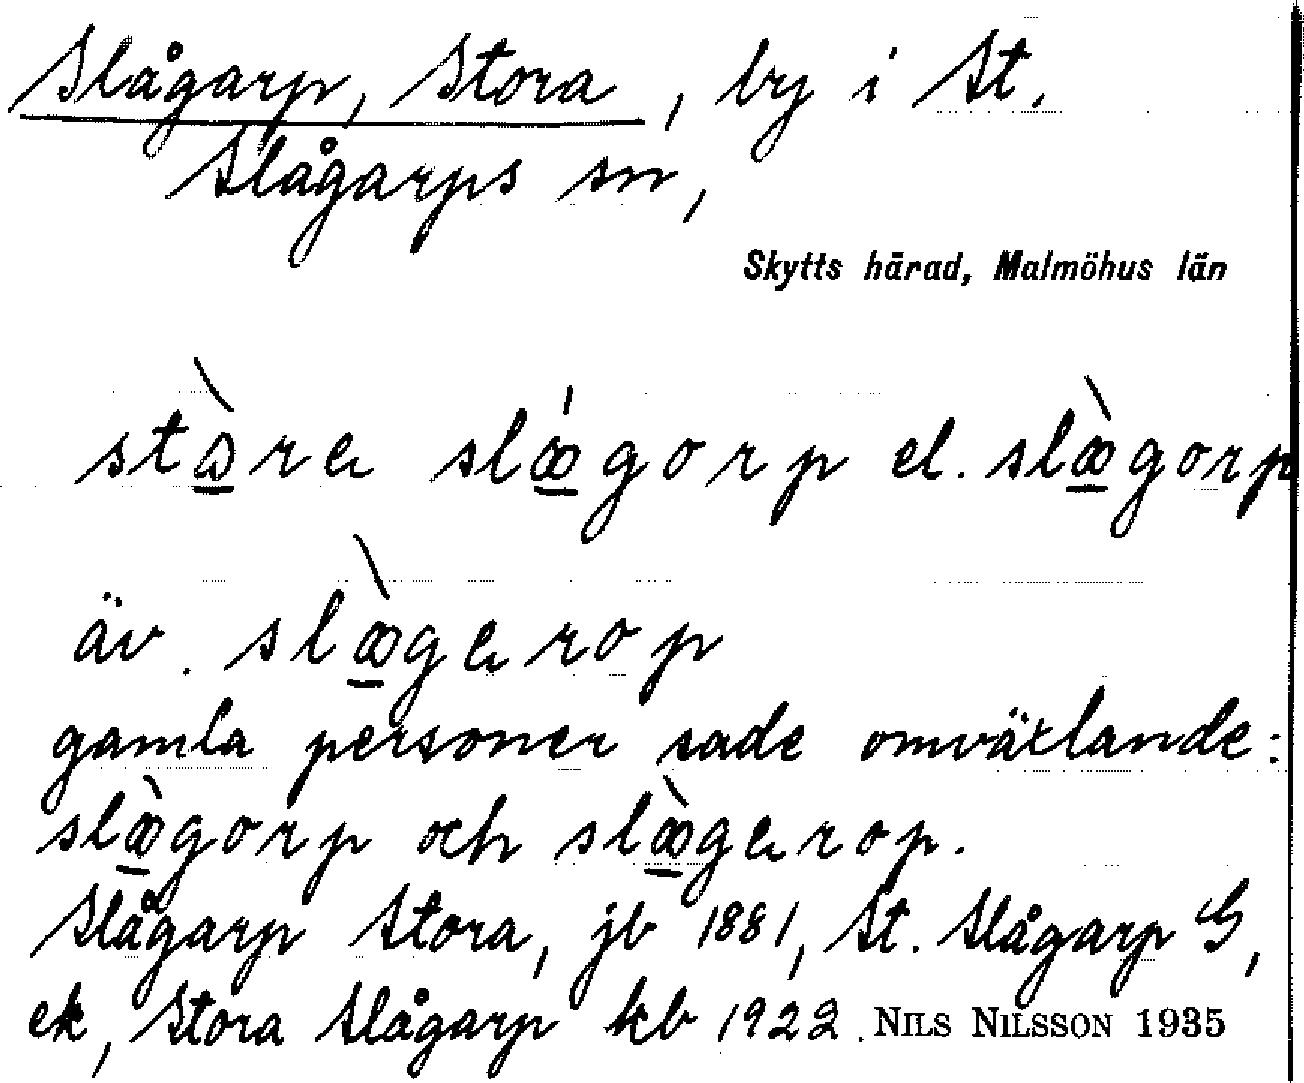 Slågarp, Stora, by i St.
Slågarps sn,
Skytts härad, Malmöhus län
el.
äv.
gamla personer sade omväxlande:
och
Slågarp Stora, jb 1881, St. Slågarp G,
ek, Stora Slågarp kb 1922. NILS NILSSON 1935